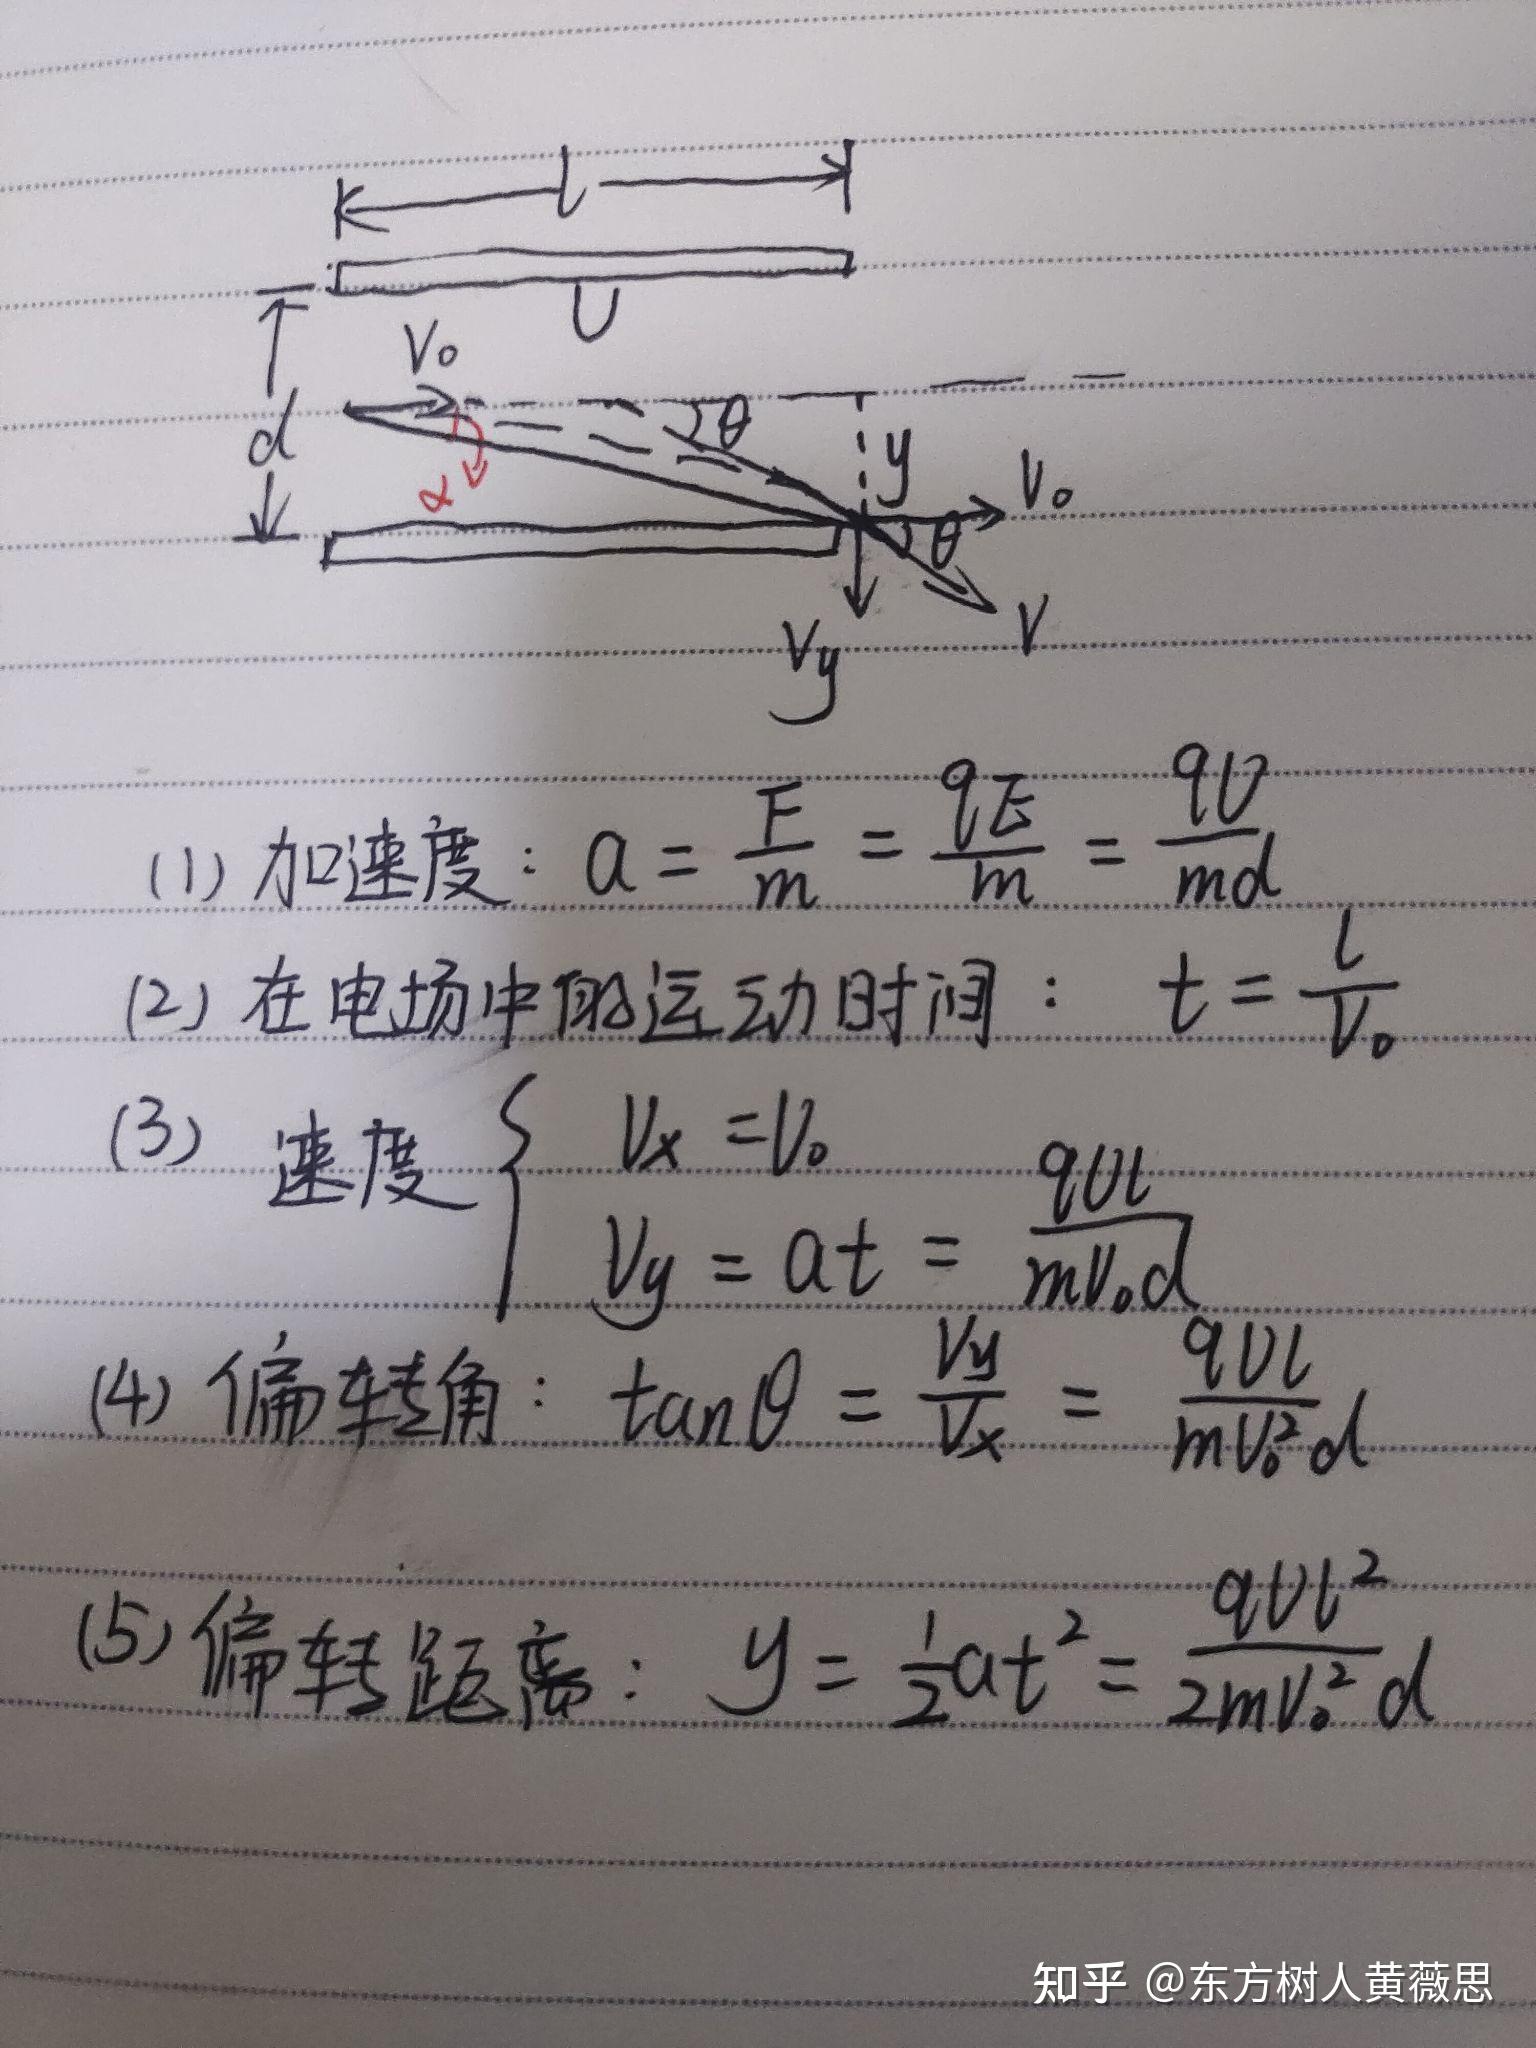 l
U
V₀
d
θ
y
α
V₀
θ
V
Vy
(1) 加速度: a = F/m = qE/m = qU/md
(2) 在电场中的运动时间: t = l/V₀
(3) 速度 { Vx = V₀
Vy = at = qUl/mV₀d
(4) 偏转角: tanθ = Vy/Vx = qUl/mV₀²d
(5) 偏转距离: y = 1/2 at² = qUl²/2mV₀²d
知乎 @东方树人黄薇思